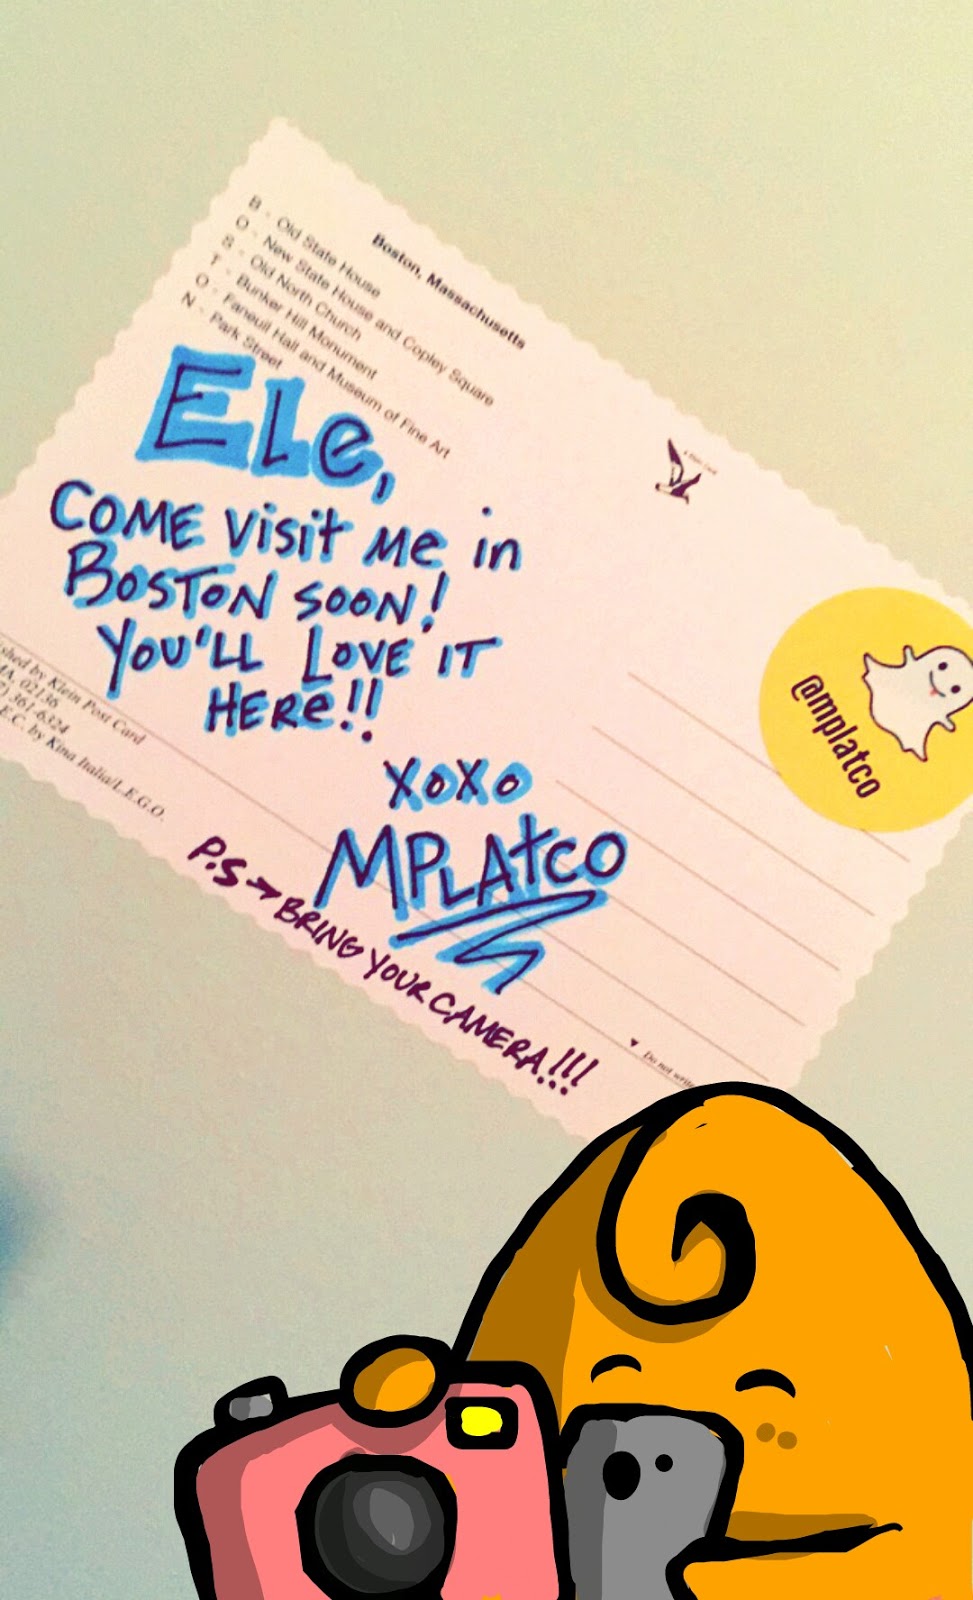 Boston, Massachusetts
B - Old State House
O - New State House and Copley Square
S - Old North Church
T - Bunker Hill Monument
O - Faneuil Hall and Museum of Fine Art
N - Park Street
Ele,
COME visit me in
BOSTON SOON!
YOU'LL LOVE IT
HERe!!
XOXO
MPLAtCO
P.S → BRING YOUR CAMERA!!!
@mplatco
by Klein Post Card
02136
361-6324
by Kina Italia/L.E.G.O.
Do not write